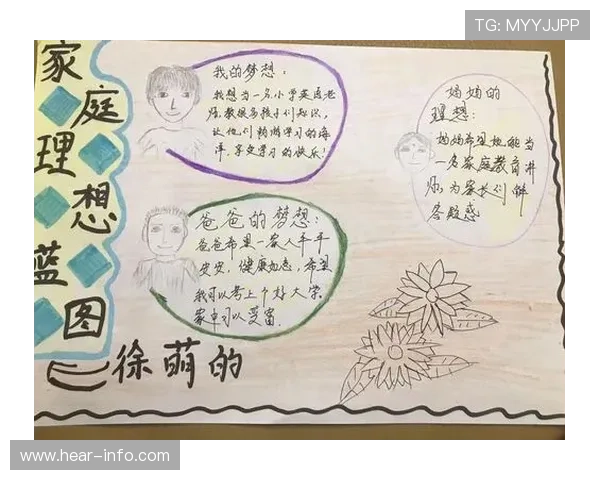 TG: MYYJJPP
家庭理想蓝图
徐萌的
我的梦想：
我想当一名小学英语老
师,教很多孩子们知识,
让他们畅游学习的海
洋,享受学习的快乐!
妈妈的
理想:
妈妈希望她能当
一名家庭教育讲
师,为家长们解
答疑惑
爸爸的梦想:
爸爸希望一家人平平
安安,健康如意,希望
我可以考上个好大学.
家中可以
www.hear-info.com